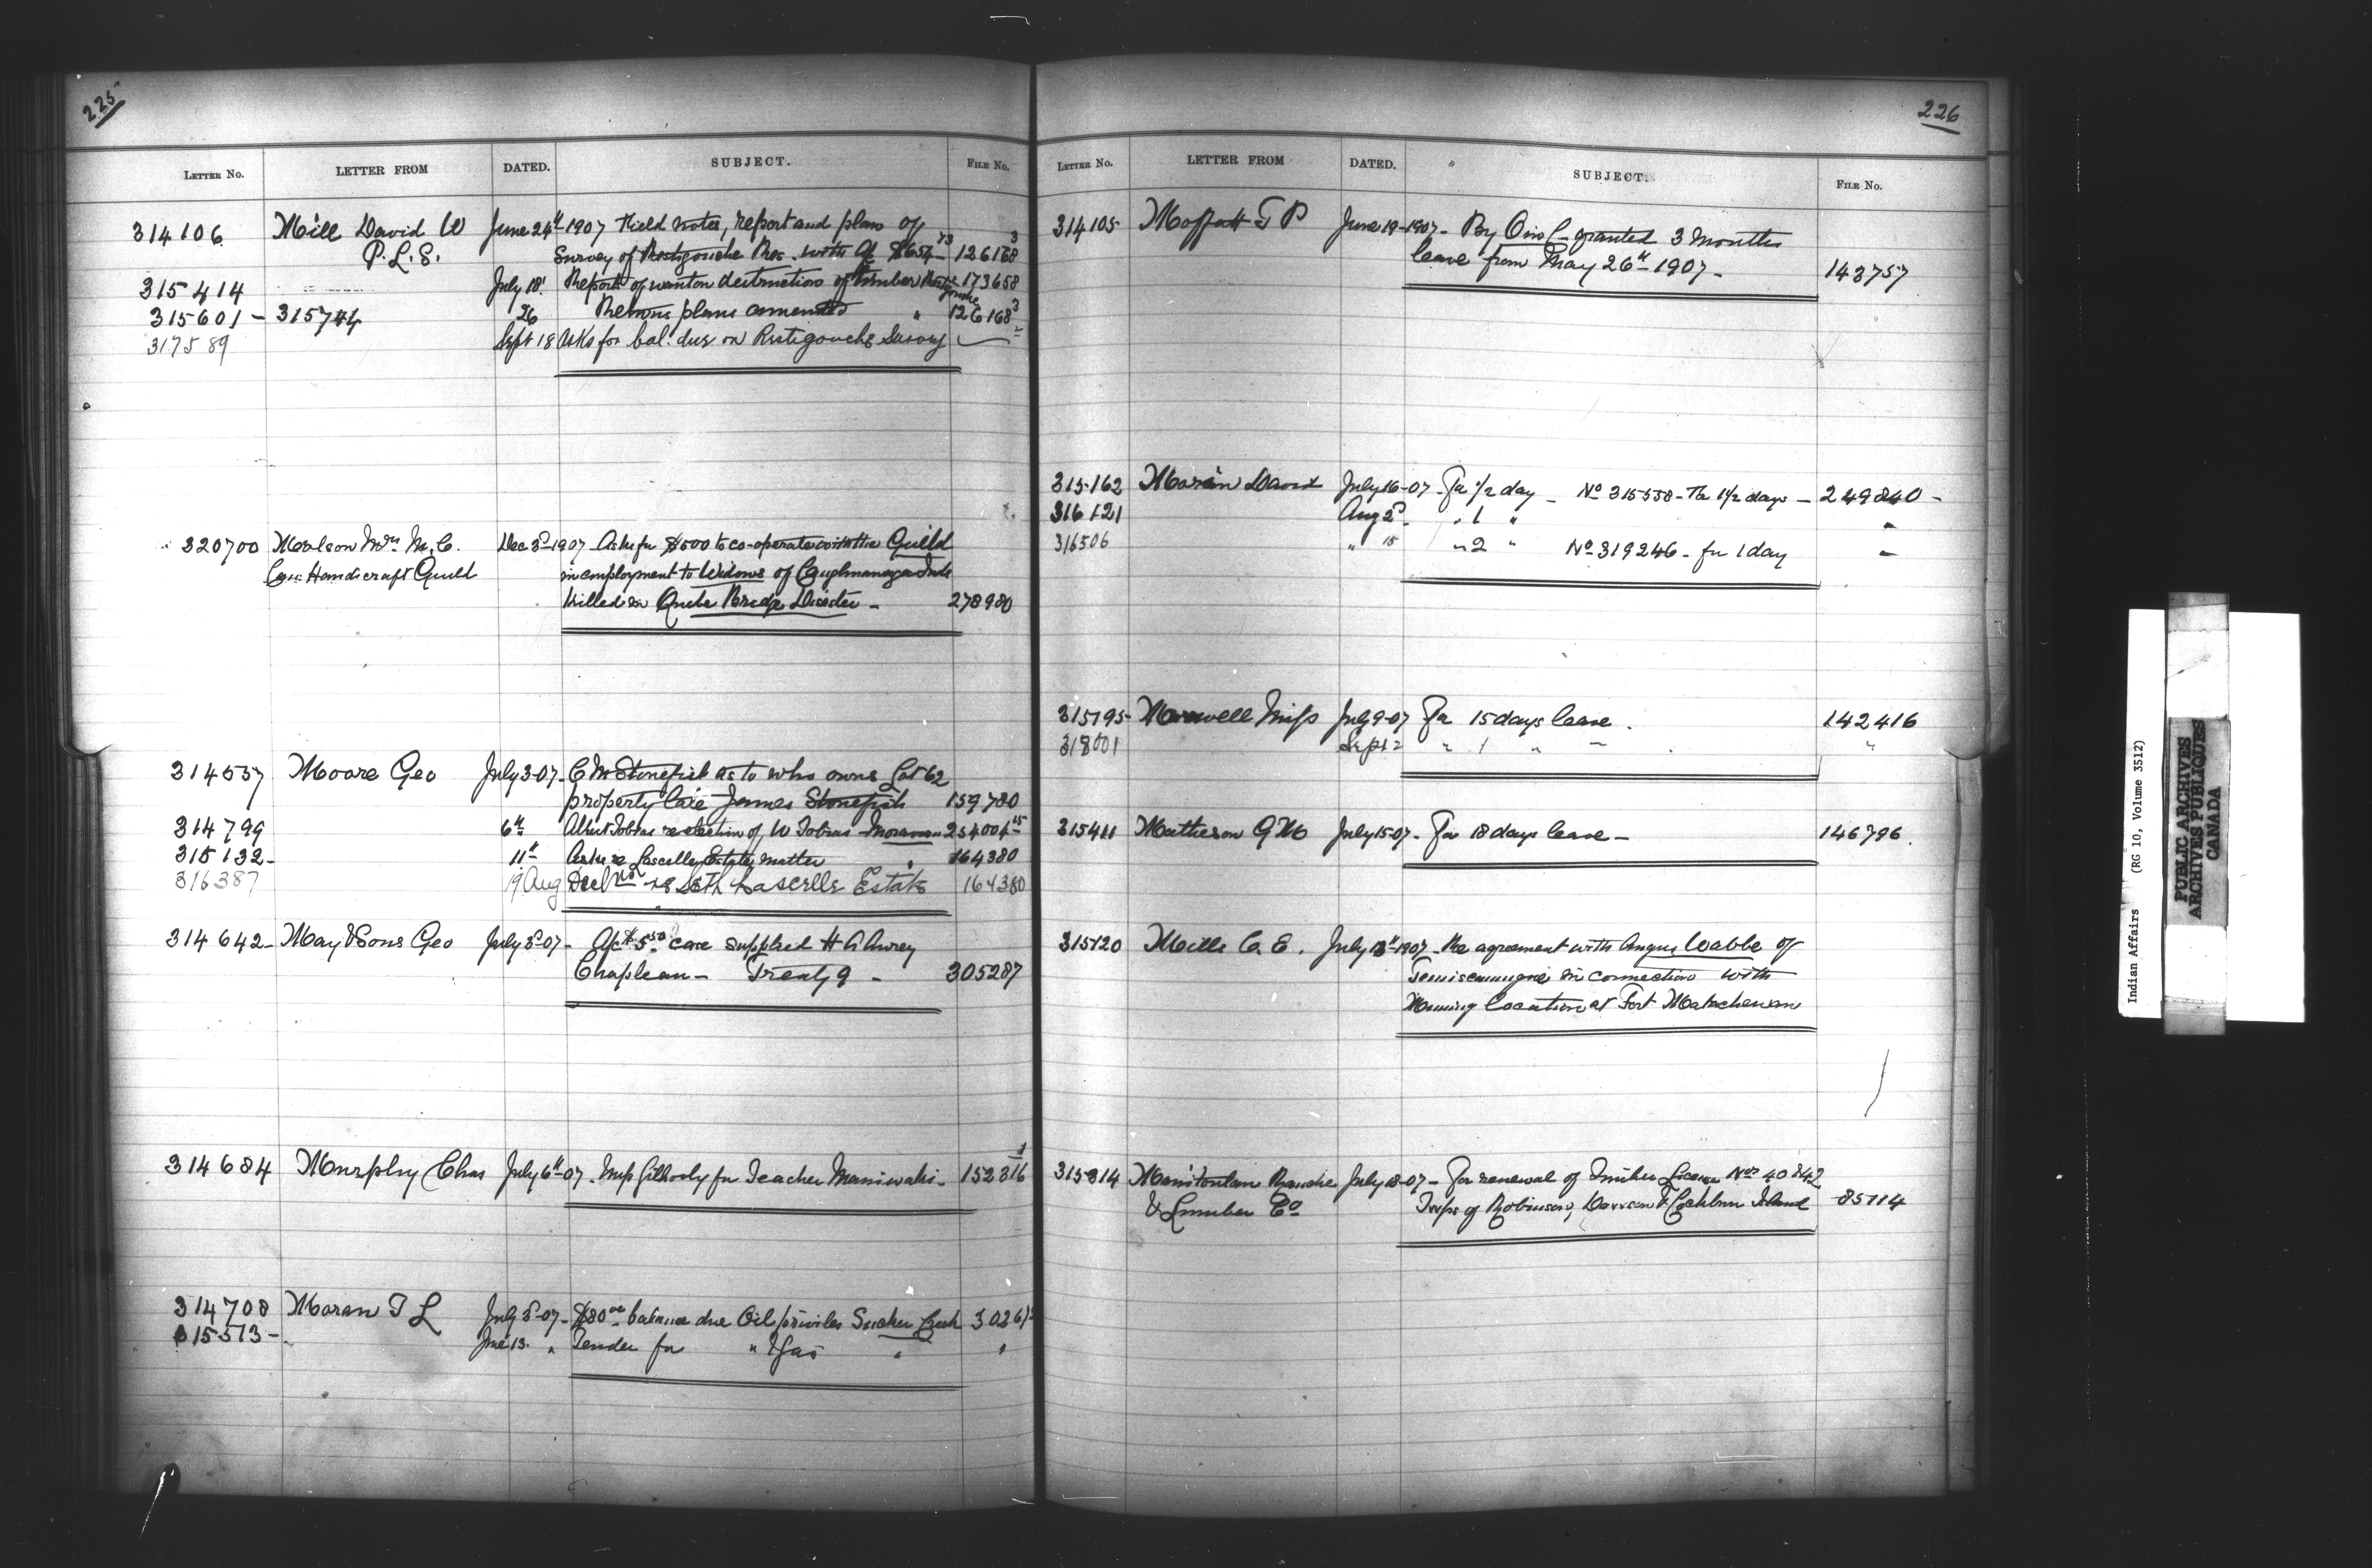 225
LETTER NO. LETTER FROM DATED. SUBJECT. FILE NO.
314106 Mill David W June 24th 1907 Field notes, report and plan of
P.L.S. Survey of Restigouche Res. with a/c $654.73 - 126168 3
315414 July 18 Report of wanton destruction of timber Restigouche 173658
315601 - 315744 26 Returns plans amended " 126168 3
317589 Sept 18 Asks for bal. due on Restigouche Survey
320700 Molson Mrs M. C. Dec 3rd 1907 Asks for $500 to co-operate with the Guild
Can. Handicraft Guild in employment to Widows of Caughnawaga Inds
killed in Quebec Bridge Disaster - 278980
314557 Moore Geo July 3-07 - C M Stonefish as to who owns Lot 62
property late James Stonefish 159780
314799 6th Albert Tobias re election of W Tobias Moravian 254004 15
315132 - 11th Asks re Lascelles Estate matter 164380
316387 19 Aug Decl'n re Seth Lascelle Estate 164380
314642 - May & Sons Geo July 3rd-07 - a/c $5.50 case supplied H A
Chapleau - Treaty 9 - 305287
314684 Murphy Chas July 6th-07. Miss Gilhooly for Teacher Maniwaki - 152316 1
314708 Moran T L July 3rd-07 - $80.00 balance due Oil privileges Sucker Creek 30261
315513 - June 13 " Tender for " & Gas " "
226
LETTER NO. LETTER FROM DATED. SUBJECT. FILE NO.
314105 Moffatt T P June 19-1907 - By O in C granted 3 months
leave from May 26th 1907 - 143757
315162 Morin David July 16-07 - For 1/2 day - No 315558 - For 1 1/2 days - 249840 -
316121 Aug 2nd. " 1 "
316506 " 15 " 2 " No 319246 - for 1 day
315195 - Maxwell Miss July 9-07 For 15 days leave. 142416
318001 Sept 2 " 1 " "
315411 Matheson G M July 15-07 - For 18 days leave - 146796.
315120 Mills C. E. July 13th 1907 - Re agreement with Angus Wabbe of
Temiscamingue in connection with
Mining Location at Fort Matachewan
315314 Manitoulin Ranche July 18-07 - For renewal of Timber License Nos 40 & 42
& Lumber Co Twps of Robinson, Dawson & Cockburn Island 85114
Indian Affairs (RG 10, Volume 3512)
PUBLIC ARCHIVES
ARCHIVES PUBLIQUES
CANADA